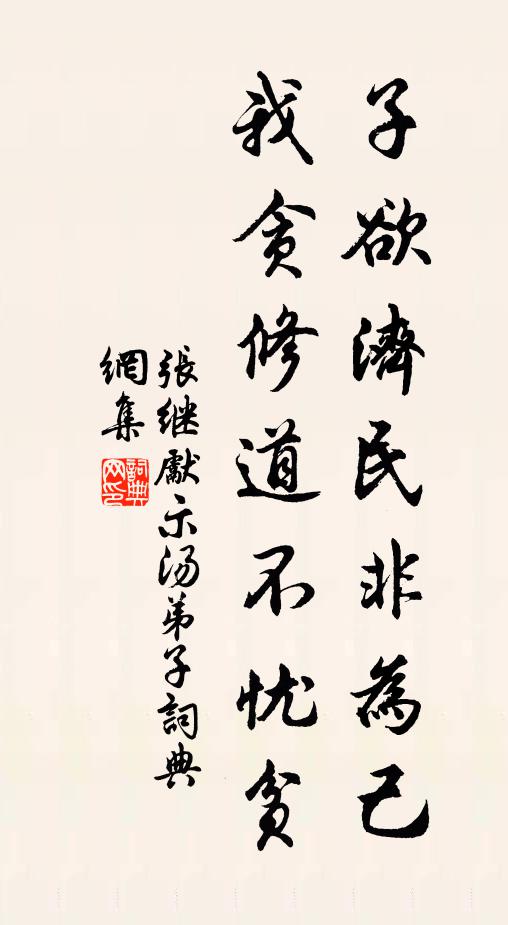 子欲濟民非為己
我貪修道不忧贫
張继獻示汤弟子詞典
網集
詞典
网印